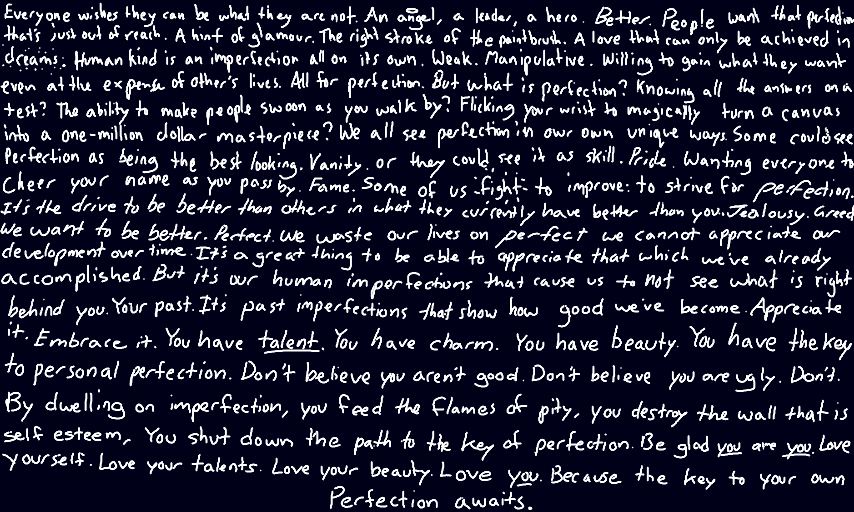 Everyone wishes they can be what they are not. An angel, a leader, a hero. Better. People want that perfection
that's just out of reach. A hint of glamour. The right stroke of the paintbrush. A love that can only be achieved in
dreams. Human kind is an imperfection all on its own. Weak. Manipulative. Willing to gain what they want
even at the expense of other's lives. All for perfection. But what is perfection? Knowing all the answers on a
test? The ability to make people swoon as you walk by? Flicking your wrist to magically turn a canvas
into a one-million dollar masterpiece? We all see perfection in our own unique ways. Some could see
Perfection as being the best looking. Vanity. or they could see it as skill. Pride. Wanting everyone to
Cheer your name as you pass by. Fame. Some of us -fight- to improve: to strive for perfection.
It's the drive to be better than others in what they currently have better than you. Jealousy. Greed
We want to be better. Perfect. We waste our lives on perfect we cannot appreciate our
development over time. It's a great thing to be able to appreciate that which we've already
accomplished. But it's our human imperfections that cause us to not see what is right
behind you. Your past. It's past imperfections that show how good we've become. Appreciate
it. Embrace it. You have talent. You have charm. You have beauty. You have the key
to personal perfection. Don't believe you aren't good. Don't believe you are ugly. Don't.
By dwelling on imperfection, you feed the flames of pity, you destroy the wall that is
self esteem, You shut down the path to the key of perfection. Be glad you are you. Love
yourself. Love your talents. Love your beauty. Love you. Because the key to your own
Perfection awaits.